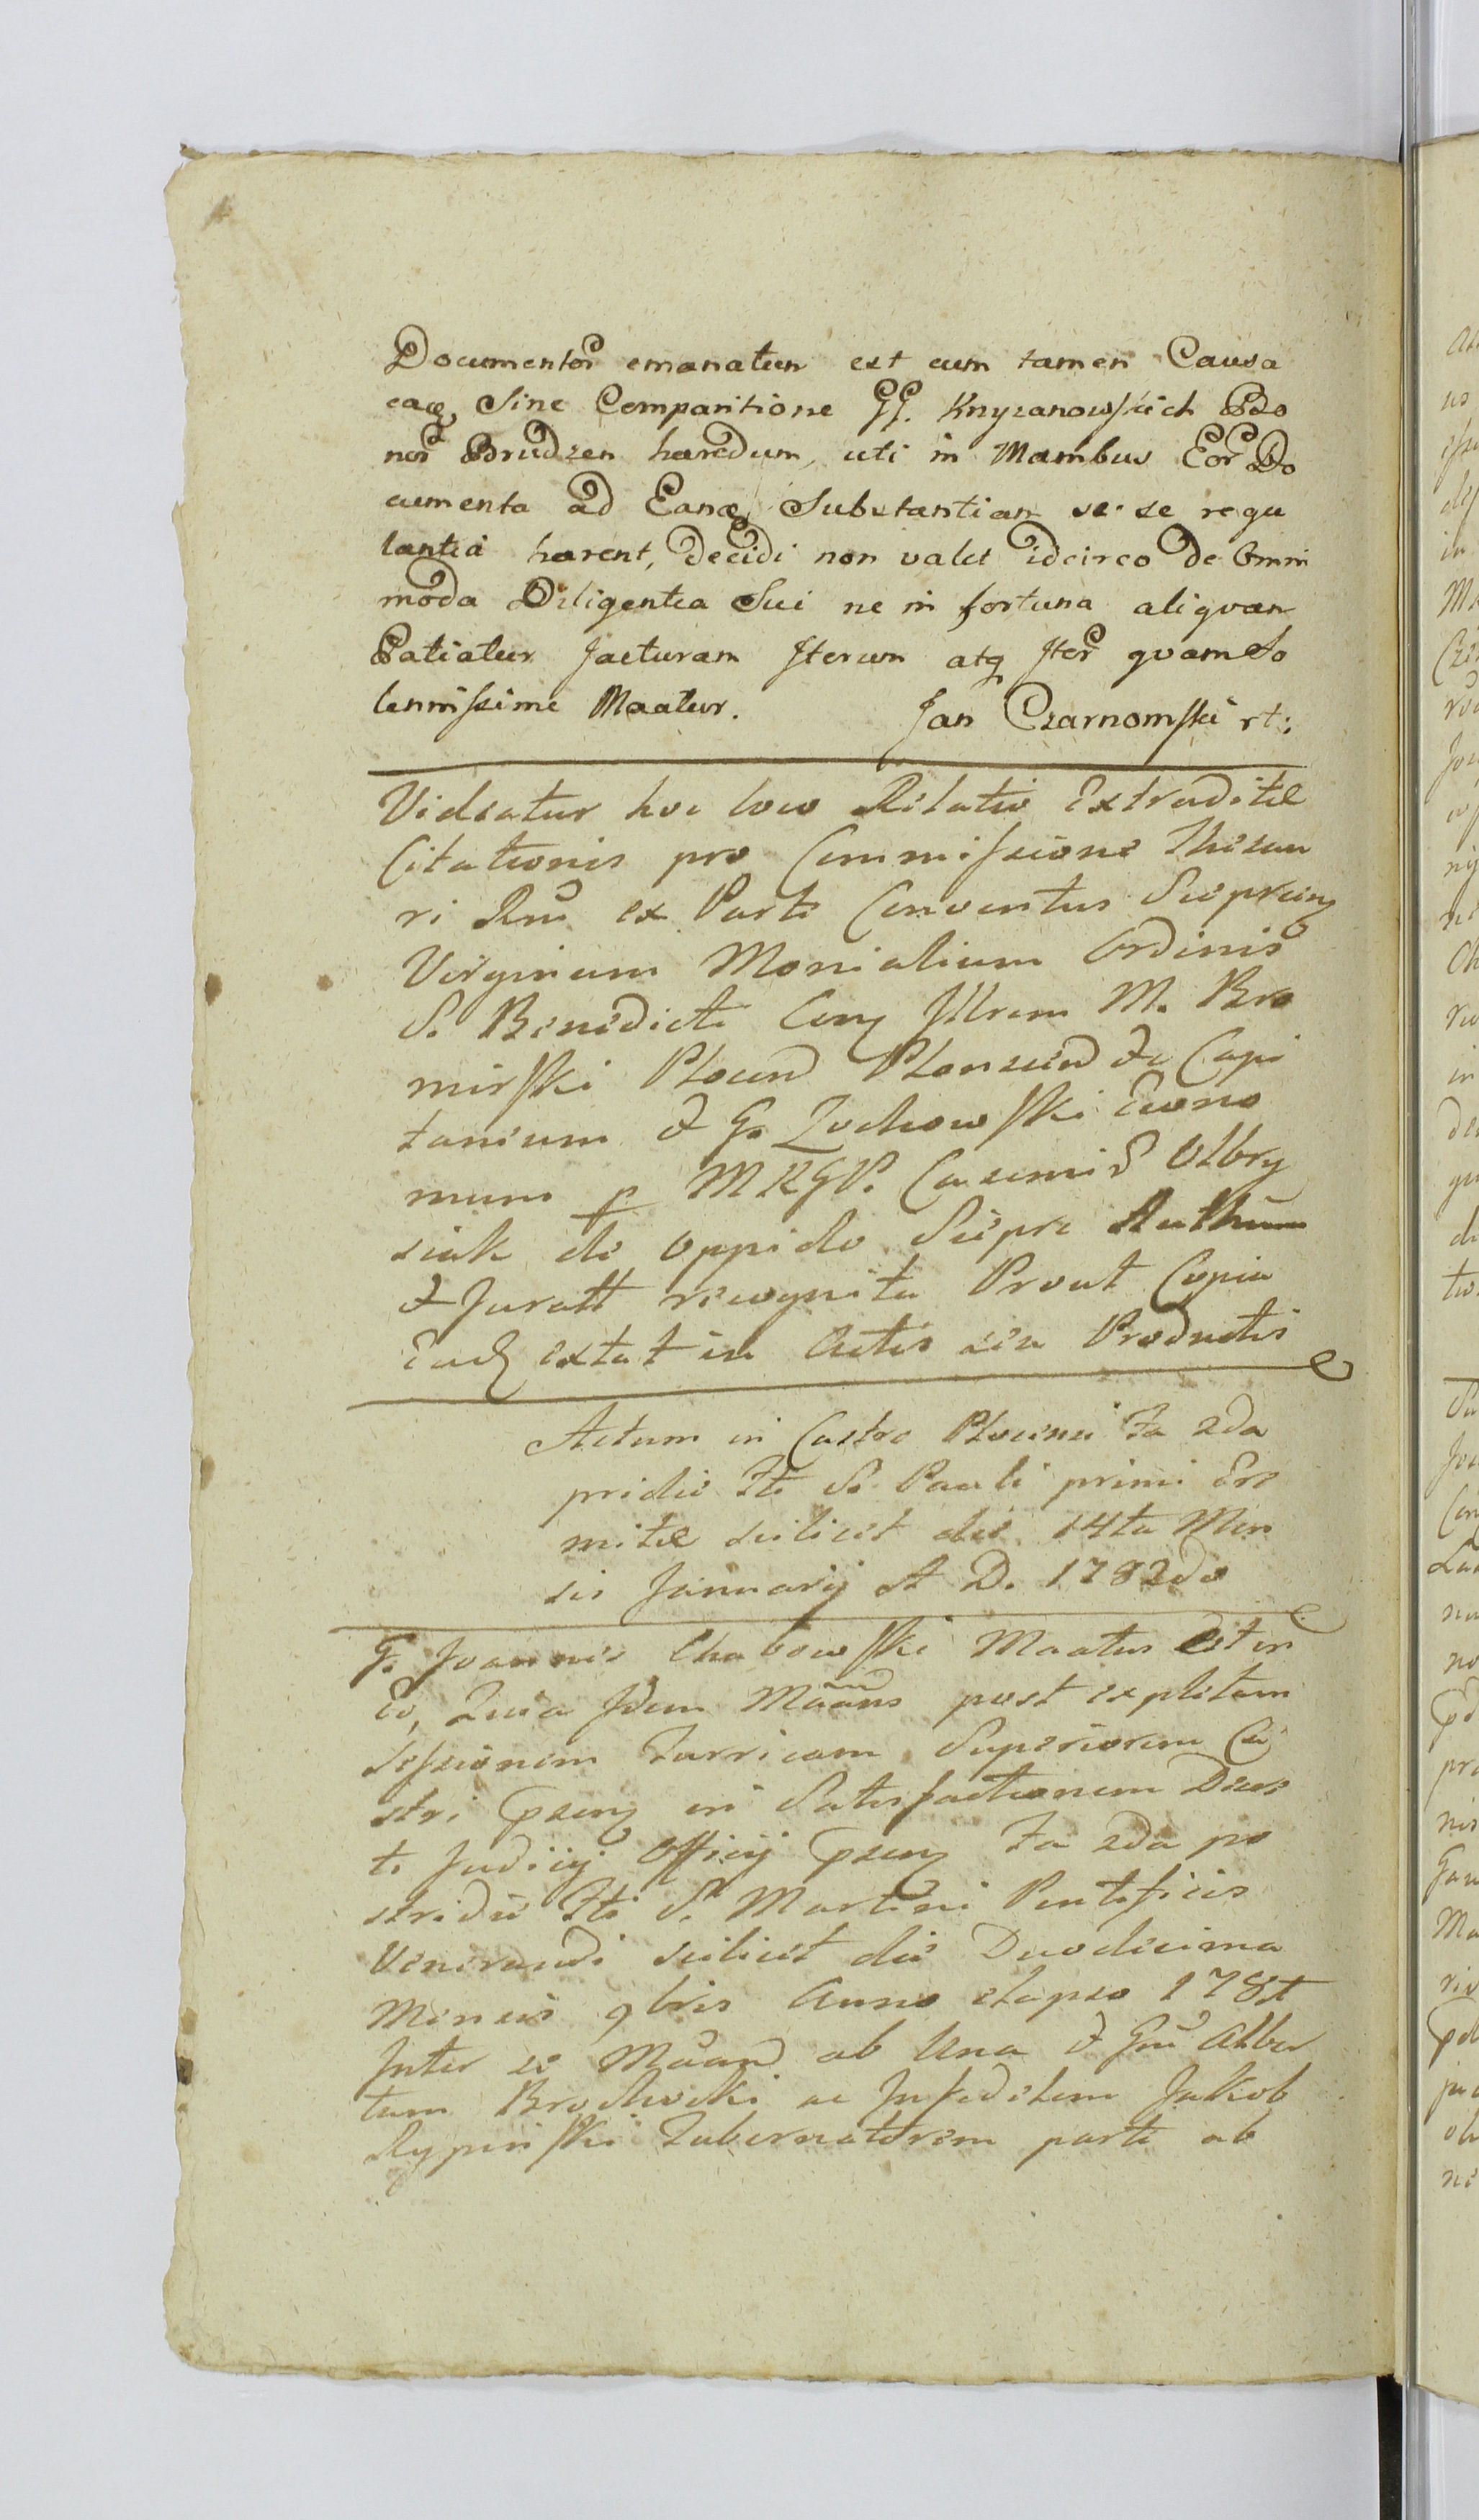 Documentor emanatum est cum tamen Causa
eaq, Sine Comparitione GG. Knyzanowskich Bo
nor Brudzen hæredum, uti in Manibus Eor Do
cumenta ad Eanq Substantiam se se regu
lantia hærent, decidi non valet idcirco de Omni
moda Diligentia Sui ne in fortuna aliquam
Patiatur Jacturam Iterum atq Iter quam So
lennissime Maatur. Jan Czarnomski rt:
Videatur hoc loco Relatio Extraditæ
Citationis pro Commissione Thesau
ri Rni ex Parte Conventus Sieprcen
Virginum Monialium Ordinis
S. Benedicti Con Illrem M. Bro
mirski Plocen Plonscen &c Capi
taneum & G. Zochowski Econo
mum p MRGP. Casimir Olbry
siak de Oppido Sieprc Authum
& Juratt recognita Prout Copia
Ead extat in Actis seu Productis
Actum in Castro Plocensi Fa 2da
pridie Fti S. Pauli primi Ere
mitæ scilicet die 14ta Men
sis Januarij A D. 1782do
G. Joannes Chabowski Maatus est in
eo, Quia Idem Maans post expletam
Sessionem Turricam Superiorem Ca
stri Psen in Satisfactionem Decre
ti Judicij Officij Psen Fa 2da po
stridie Fti S. Martini Pontificis
Venerandi scilicet die Duodecima
Mensis 9bris Anno elapso 178t
Inter se Maan ab Una & Gm Alber
tum Brochocki ac Infidelem Jakob
Rypinski Tabernatorem parte ab